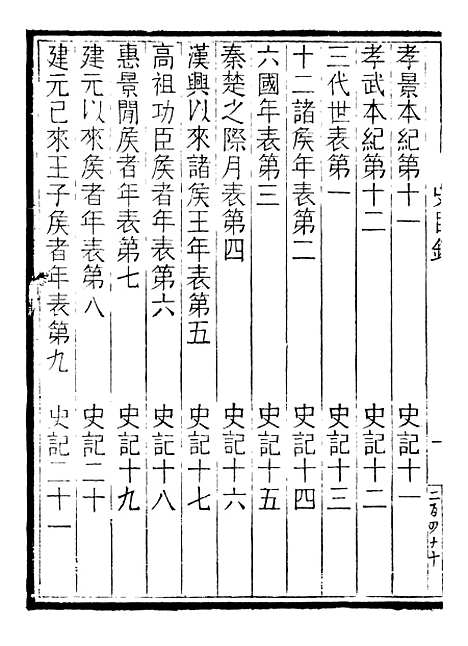 孝景本紀第十一 史記十一
孝武本紀第十二 史記十二
三代世表第一 史記十三
十二諸侯年表第二 史記十四
六國年表第三 史記十五
秦楚之際月表第四 史記十六
漢興以來諸侯王年表第五 史記十七
高祖功臣侯者年表第六 史記十八
惠景間侯者年表第七 史記十九
建元以來侯者年表第八 史記二十
建元已來王子侯者年表第九 史記二十一